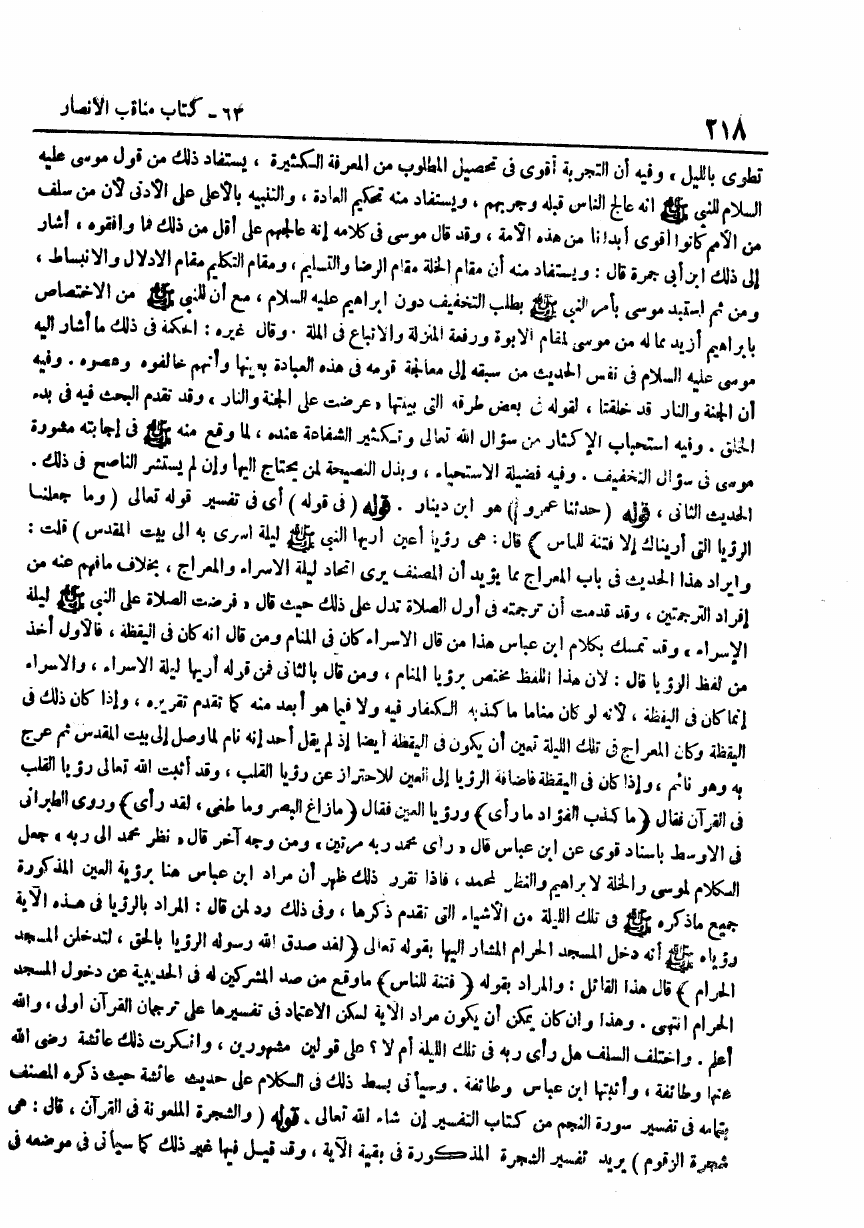 ٢١٨
٦٣ - كتاب مناقب الأنصار
تطوى بالليل ، وفيه أن التجربة أقوى فى تحصيل المطلوب من المعرفة الكثيرة ، يستفاد ذلك من قول موسى عليه
السلام للنبي ﷺ انه عالج الناس قبله وجربهم . ويستفاد منه تحكيم العادة ، والتنبيه بالأعلى على الأدنى لأن من سلف
من الأمم كانوا أقوى أبدانا من هذه الأمة ، وقد قال موسى فى كلامه إنه عالجهم على أقل من ذلك فما وافقوه ، أشار
إلى ذلك ابن أبى جمرة قال : ويستفاد منه أن مقام الخلة مقام الرضا والتسليم ، ومقام التكليم مقام الادلال والانبساط ،
ومن ثم استبد موسى بأمر النبى ﷺ بطلب التخفيف دون ابراهيم عليه السلام ، مع أن للنبى ﷺ من الاختصاص
بابراهيم أزيد مما له من موسى لمقام الابوة ورفعة المنزلة والاتباع فى الملة . وقال غيره : الحكمة فى ذلك ما أشار اليه
موسى عليه السلام فى نفس الحديث من سبقه إلى معالجة قومه فى هذه العبادة بعينها وأنهم خالفوه وعصوه . وفيه
أن الجنة والنار قد خلقتا ، لقوله فى بعض طرقه التى بينتها « عرضت على الجنة والنار » وقد تقدم البحث فيه فى بدء
الخلق . وفيه استحباب الإكثار من سؤال الله تعالى وتكثير الشفاعة عنده ، لما وقع منه ﷺ فى إجابته مشورة
موسى فى سؤال التخفيف . وفيه فضيلة الاستحياء ، وبذل النصيحة لمن يحتاج اليها وإن لم يستشر الناصح فى ذلك .
الحديث الثانى ، قوله ( حدثنا عمرو ) هو ابن دينار . قوله ( فى قوله ) أى فى تفسير قوله تعالى ( وما جعلنا
الرؤيا التى أريناك إلا فتنة للناس ﴾ قال : هى رؤيا أعين اريها النبى ﷺ ليلة اسرى به الى بيت المقدس ) قلت :
وايراد هذا الحديث فى باب المعراج مما يؤيد أن المصنف يرى اتحاد ليلة الاسراء والمعراج ، بخلاف مافهم عنه من
إفراد الترجمتين ، وقد قدمت أن ترجمته فى أول الصلاة تدل على ذلك حيث قال « فرضت الصلاة على النبى ﷺ ليلة
الإسراء » وقد تمسك بكلام ابن عباس هذا من قال الاسراء كان فى المنام ومن قال انه كان فى اليقظة ، فالأول أخذ
من لفظ الرؤيا قال : لان هذا اللفظ مختص برؤيا المنام ، ومن قال بالثانى فمن قوله أريها ليلة الاسراء ، والاسراء
إنما كان فى اليقظة ، لأنه لو كان مناما ما كذبه الكفار فيه ولا فيما هو أبعد منه كما تقدم تقريره ، وإذا كان ذلك فى
اليقظة وكان المعراج فى تلك الليلة تعين أن يكون فى اليقظة أيضا إذ لم يقل أحد إنه نام لما وصل إلى بيت المقدس ثم عرج
به وهو نائم ، وإذا كان فى اليقظة فاضافة الرؤيا إلى العين للاحتراز عن رؤيا القلب ، وقد أثبت الله تعالى رؤيا القلب
فى القرآن فقال ﴿ ما كذب الفؤاد ما رأى ﴾ ورؤيا العين فقال ﴿ ما زاغ البصر وما طغى ، لقد رأى ﴾ وروى الطبرانى
فى الاوسط باسناد قوى عن ابن عباس قال « رأى محمد ربه مرتين » ومن وجه آخر قال « نظر محمد الى ربه » جعل
الكلام لموسى والخلة لابراهيم والنظر لمحمد ، فاذا تقرر ذلك ظهر أن مراد ابن عباس هنا برؤية العين المذكورة
جميع ماذكره ﷺ فى تلك الليلة من الأشياء التى تقدم ذكرها ، وفى ذلك رد لمن قال : المراد بالرؤيا فى هذه الآية
رؤياه ﷺ أنه دخل المسجد الحرام المشار اليها بقوله تعالى ﴿ لقد صدق الله رسوله الرؤيا بالحق ، لتدخلن المسجد
الحرام ﴾ قال هذا القائل : والمراد بقوله ﴿ فتنة للناس ﴾ ماوقع من صد المشركين له فى الحديبية عن دخول المسجد
الحرام انتهى . وهذا وان كان يمكن أن يكون مراد الآية لكن الاعتماد فى تفسيرها على ترجمان القرآن أولى ، والله
أعلم . واختلف السلف هل رأى ربه فى تلك الليلة أم لا ؟ على قولين مشهورين ، وانكرت ذلك عائشة رضى الله
عنها وطائفة ، وأثبتها ابن عباس وطائفة . وسيأتى بسط ذلك فى الكلام على حديث عائشة حيث ذكره المصنف
بتمامه فى تفسير سورة النجم من كتاب التفسير إن شاء الله تعالى . قوله ( والشجرة الملعونة فى القرآن ، قال : هى
شجرة الزقوم ) يريد تفسير الشجرة المذكورة فى بقية الآية ، وقد قيل فيها غير ذلك كما سيأتى فى موضعه فى